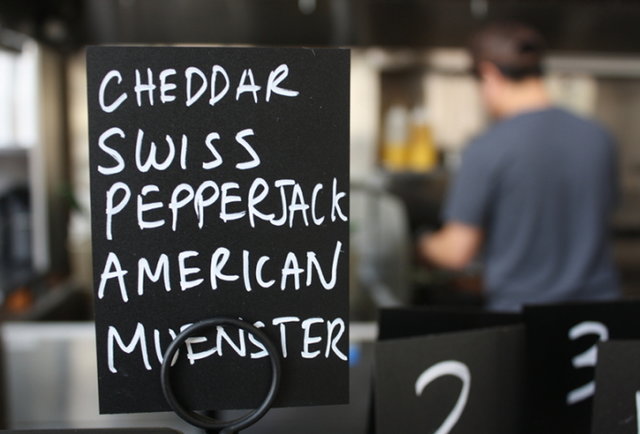 CHEDDAR
SWISS
PEPPERJACK
AMERICAN
MUENSTER
2
3